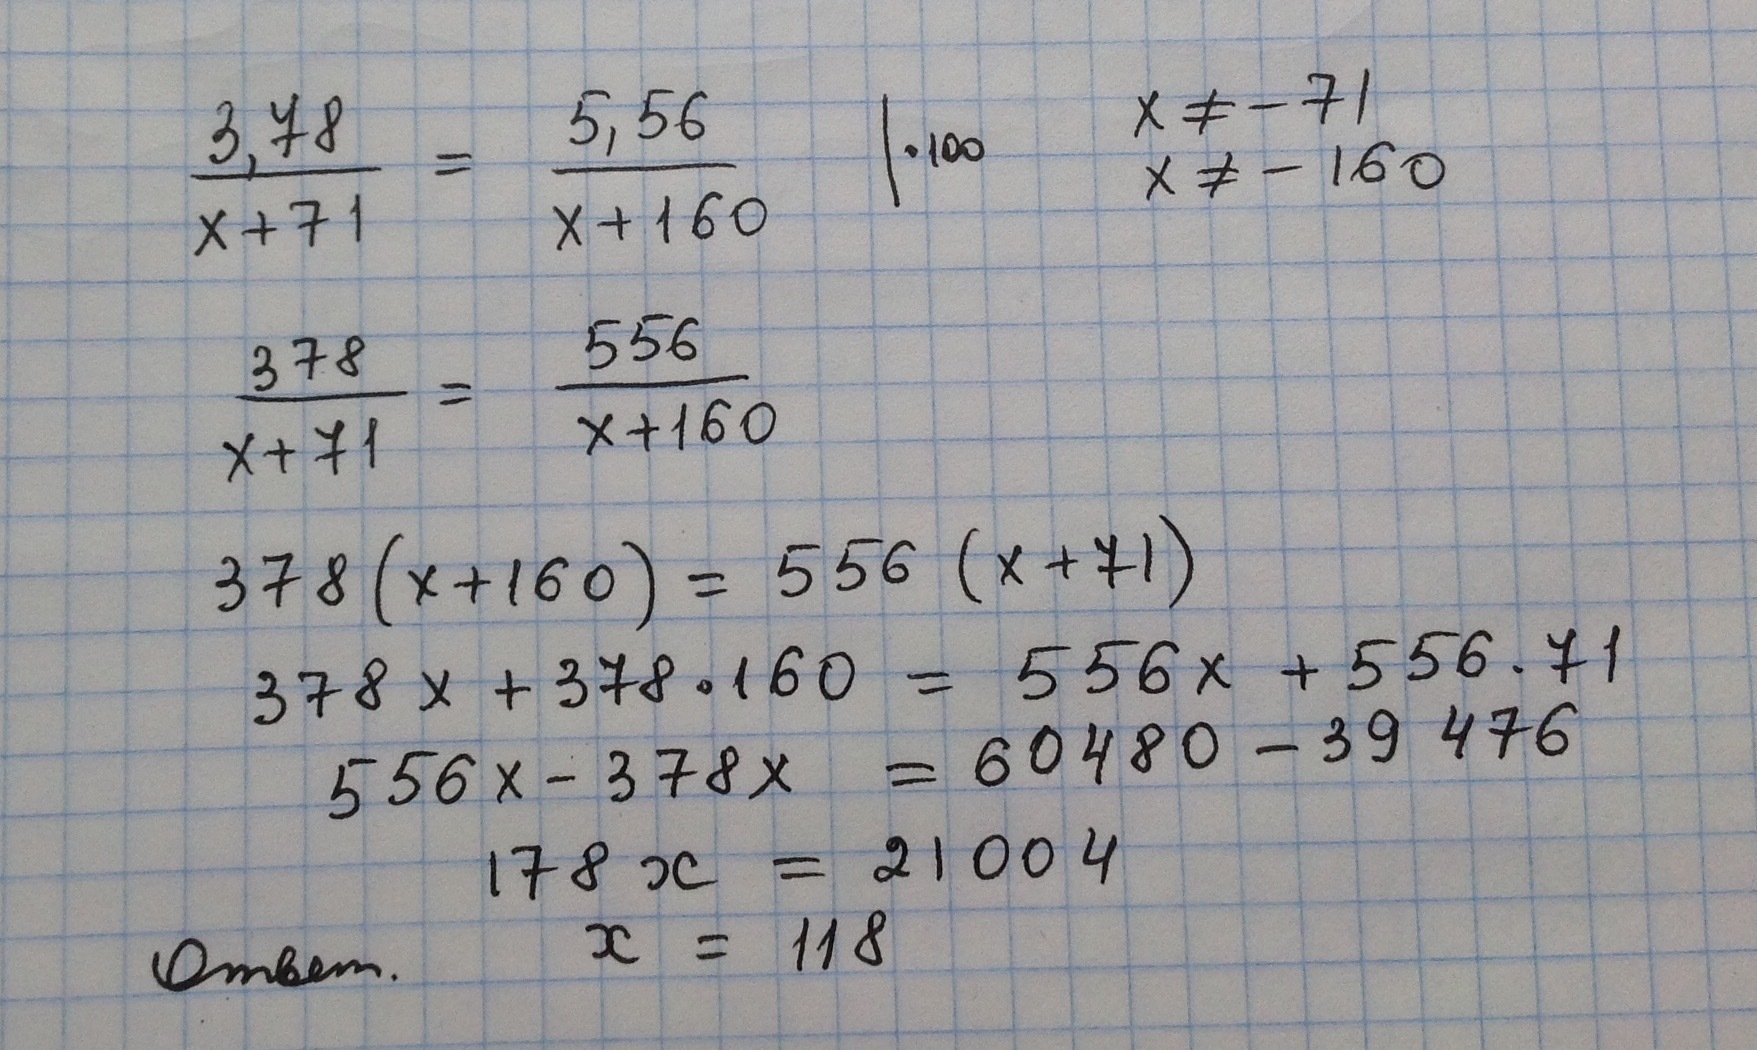 3,78 / x+71 = 5,56 / x+160 | ·100 x ≠ -71
x ≠ -160
378 / x+71 = 556 / x+160
378(x+160) = 556 (x+71)
378x + 378·160 = 556x + 556·71
556x - 378x = 60480 - 39 476
178x = 21004
Ответ. x = 118